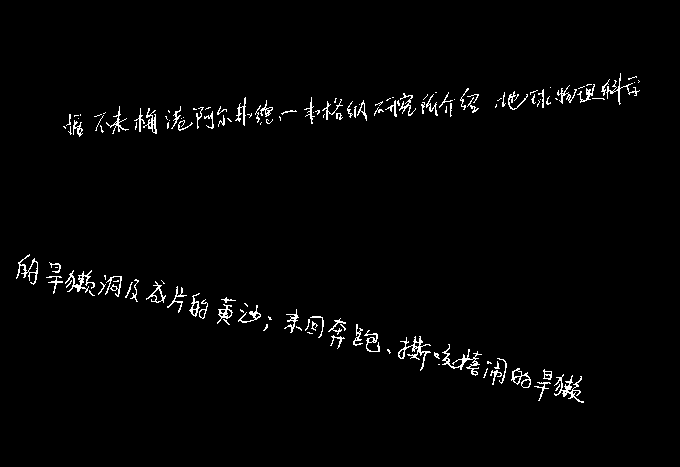 据不来梅港阿尔弗德一韦格纳研究所介绍，地球物理科学
的旱獭洞及成片的黄沙；来回奔跑、撕咬嬉闹的旱獭